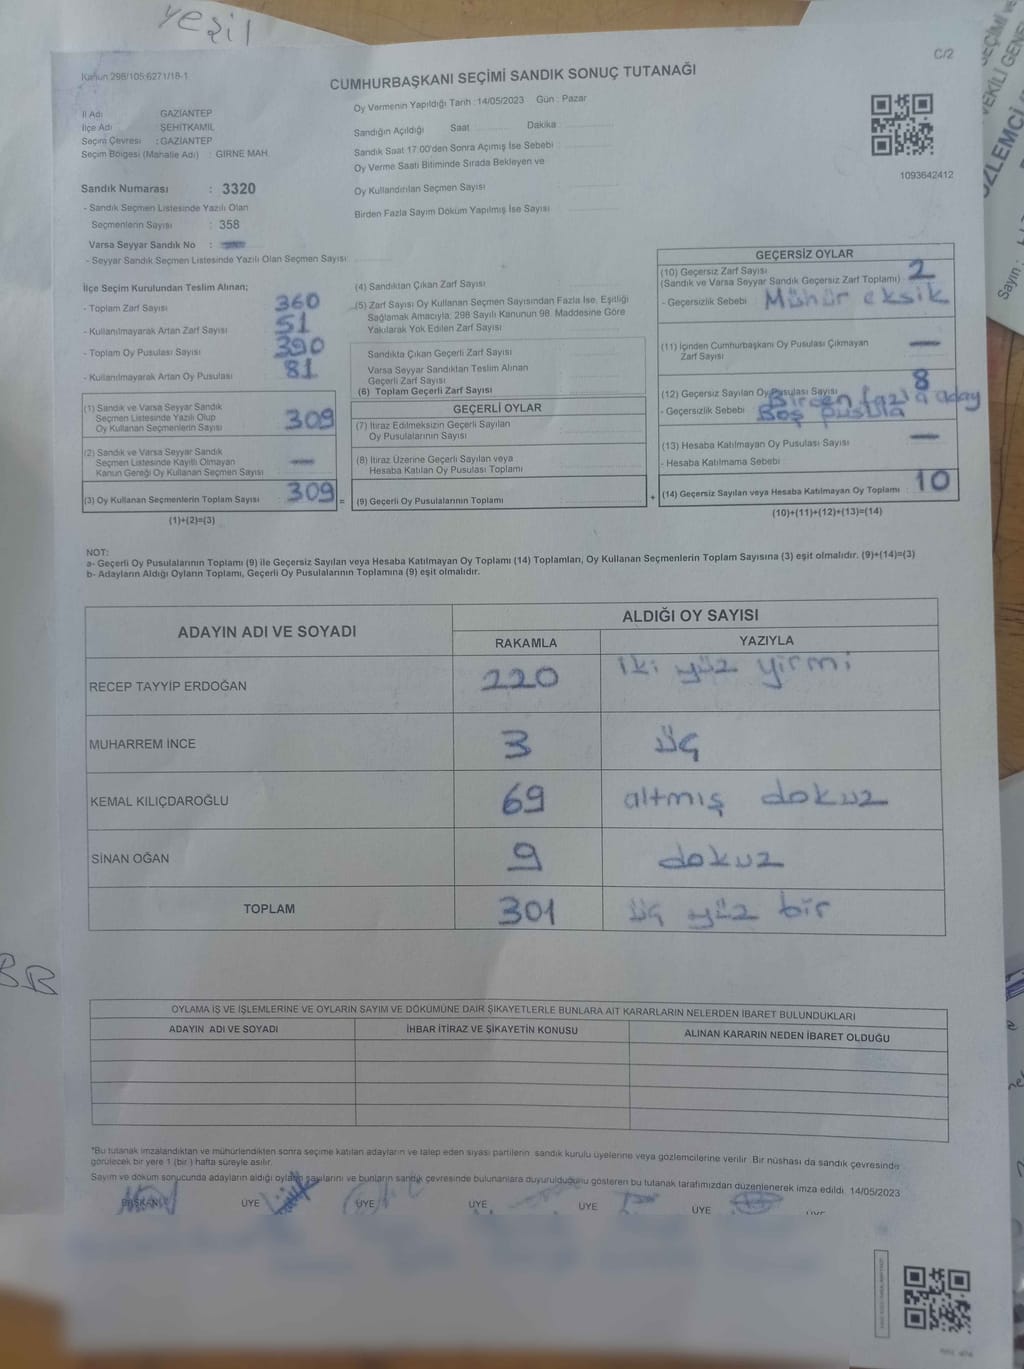 yeşil
C/2
Kanun 298/105 6271/18-1
CUMHURBAŞKANI SEÇİMİ SANDIK SONUÇ TUTANAĞI
İl Adı GAZİANTEP
İlçe Adı ŞEHİTKAMİL
Seçim Çevresi : GAZİANTEP
Seçim Bölgesi (Mahalle Adı) : GİRNE MAH.
Sandık Numarası : 3320
- Sandık Seçmen Listesinde Yazılı Olan
Seçmenlerin Sayısı : 358
Varsa Seyyar Sandık No :
- Seyyar Sandık Seçmen Listesinde Yazılı Olan Seçmen Sayısı
Oy Vermenin Yapıldığı Tarih : 14/05/2023 Gün : Pazar
Sandığın Açıldığı Saat Dakika
Sandık Saat 17.00'den Sonra Açımış İse Sebebi
Oy Verme Saati Bitiminde Sırada Bekleyen ve
Oy Kullandırılan Seçmen Sayısı
Birden Fazla Sayım Döküm Yapılmış İse Sayısı
1093642412
İlçe Seçim Kurulundan Teslim Alınan;
- Toplam Zarf Sayısı 360
- Kullanılmayarak Artan Zarf Sayısı 51
- Toplam Oy Pusulası Sayısı 390
- Kullanılmayarak Artan Oy Pusulası 81
(1) Sandık ve Varsa Seyyar Sandık
Seçmen Listesinde Yazılı Olup
Oy Kullanan Seçmenlerin Sayısı 309
(2) Sandık ve Varsa Seyyar Sandık
Seçmen Listesinde Kayıtlı Olmayan
Kanun Gereği Oy Kullanan Seçmen Sayısı —
(3) Oy Kullanan Seçmenlerin Toplam Sayısı 309 =
(1)+(2)=(3)
(4) Sandıktan Çıkan Zarf Sayısı
(5) Zarf Sayısı Oy Kullanan Seçmen Sayısından Fazla İse, Eşitliği
Sağlamak Amacıyla, 298 Sayılı Kanunun 98. Maddesine Göre
Yakılarak Yok Edilen Zarf Sayısı
Sandıkta Çıkan Geçerli Zarf Sayısı
Varsa Seyyar Sandıktan Teslim Alınan
Geçerli Zarf Sayısı
(6) Toplam Geçerli Zarf Sayısı
GEÇERLİ OYLAR
(7) İtiraz Edilmeksizin Geçerli Sayılan
Oy Pusulalarının Sayısı
(8) İtiraz Üzerine Geçerli Sayılan veya
Hesaba Katılan Oy Pusulası Toplamı
(9) Geçerli Oy Pusulalarının Toplamı +
GEÇERSİZ OYLAR
(10) Geçersiz Zarf Sayısı 2
(Sandık ve Varsa Seyyar Sandık Geçersiz Zarf Toplamı)
- Geçersizlik Sebebi Mühür eksik
(11) İçinden Cumhurbaşkanı Oy Pusulası Çıkmayan
Zarf Sayısı —
(12) Geçersiz Sayılan Oy Pusulası Sayısı 8
Birden fazla aday
- Geçersizlik Sebebi Boş pusula
(13) Hesaba Katılmayan Oy Pusulası Sayısı —
- Hesaba Katılmama Sebebi
(14) Geçersiz Sayılan veya Hesaba Katılmayan Oy Toplamı : 10
(10)+(11)+(12)+(13)=(14)
NOT:
a- Geçerli Oy Pusulalarının Toplamı (9) ile Geçersiz Sayılan veya Hesaba Katılmayan Oy Toplamı (14) Toplamları, Oy Kullanan Seçmenlerin Toplam Sayısına (3) eşit olmalıdır. (9)+(14)=(3)
b- Adayların Aldığı Oyların Toplamı, Geçerli Oy Pusulalarının Toplamına (9) eşit olmalıdır.
ADAYIN ADI VE SOYADI
ALDIĞI OY SAYISI
RAKAMLA YAZIYLA
RECEP TAYYİP ERDOĞAN 220 iki yüz yirmi
MUHARREM İNCE 3 üç
KEMAL KILIÇDAROĞLU 69 altmış dokuz
SİNAN OĞAN 9 dokuz
TOPLAM 301 üç yüz bir
OYLAMA İŞ VE İŞLEMLERİNE VE OYLARIN SAYIM VE DÖKÜMÜNE DAİR ŞİKAYETLERLE BUNLARA AİT KARARLARIN NELERDEN İBARET BULUNDUKLARI
ADAYIN ADI VE SOYADI İHBAR İTİRAZ VE ŞİKAYETİN KONUSU ALINAN KARARIN NEDEN İBARET OLDUĞU
*Bu tutanak imzalandıktan ve mühürlendikten sonra seçime katılan adayların ve talep eden siyasi partilerin sandık kurulu üyelerine veya gözlemcilerine verilir. Bir nüshası da sandık çevresinde
görülecek bir yere 1 (bir ) hafta süreyle asılır.
Sayım ve döküm sonucunda adayların aldığı oyların sayılarını ve bunların sandık çevresinde bulunanlara duyurulduğunu gösteren bu tutanak tarafımızdan düzenlenerek imza edildi. 14/05/2023
BAŞKAN ÜYE ÜYE ÜYE ÜYE ÜYE